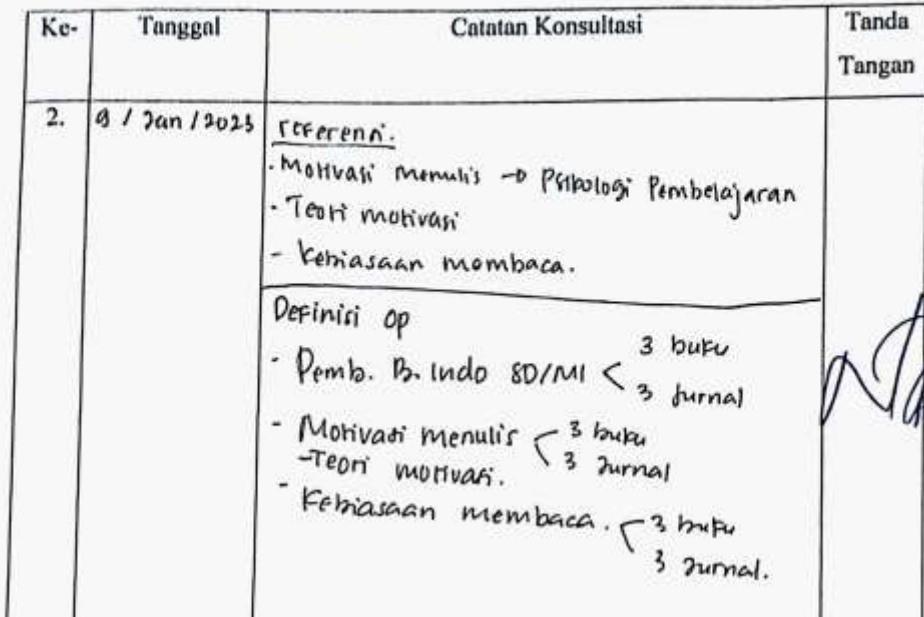 Ke- Tanggal Catatan Konsultasi Tanda Tangan
2. 9 / Jan / 2023
referensi.
- Motivasi menulis → Psikologi Pembelajaran
- Teori motivasi
- Kebiasaan membaca.
Definisi Op
- Pemb. B. Indo SD/MI < 3 buku
3 Jurnal
- Motivasi menulis < 3 buku
3 Jurnal
- Teori motivasi.
- Kebiasaan membaca. < 3 buku
3 Jurnal.